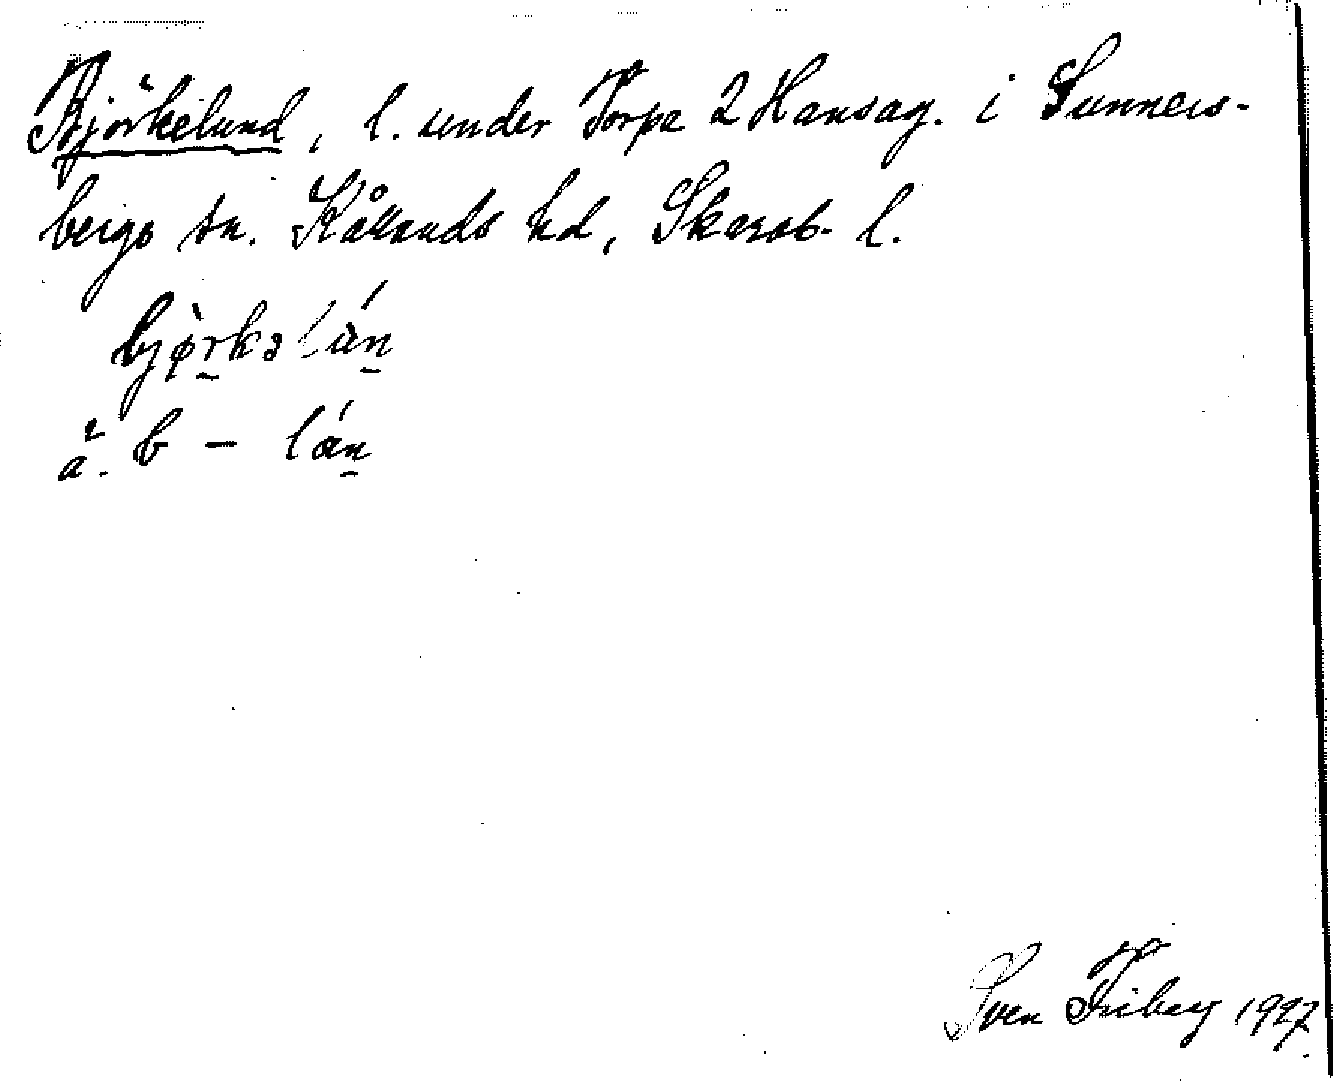 Björkelund, l. under Torpa 2 Hansag. i Sunners-
bergs sn. Kållands hd, Skarab. l.
bjö̀rkəlún
ä. b – lún
Sven Friberg 1927